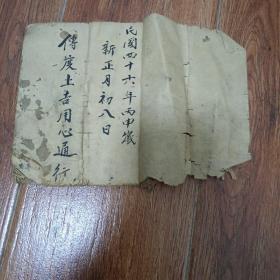 民國四十六年丙申歲
新正月初八日
傳度土吉用心通行